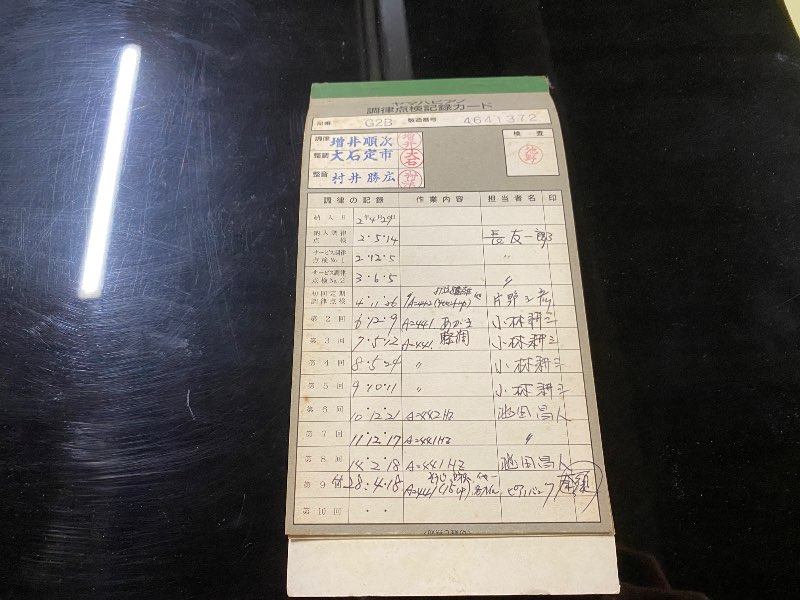 ヤマハピアノ
調律点検記録カード
品番 G2B 製造番号 4641372
調律 増井順次 増井 検査
整調 大石定市 大石
整音 村井勝広
調律の記録 作業内容 担当者名 印
納入日 2年4月29日
納入調律点検 2・5・14 長友一郎
サービス調律点検No.1 2・12・5 〃
サービス調律点検No.2 3・6・5 〃
初回定期調律点検 4・11・26 A=442
第2回 6・12・9 A=441 小林耕斗
第3回 7・5・12 A=441 小林耕斗
第4回 8・5・24 〃 小林耕斗
第5回 9・10・11 〃 小林耕斗
第6回 10・12・21 A=442Hz 池田昌人
第7回 11・12・17 A=441Hz 〃
第8回 14・2・18 A=441HZ 池田昌人
第9回 28・4・18 A=441
第10回 ・・